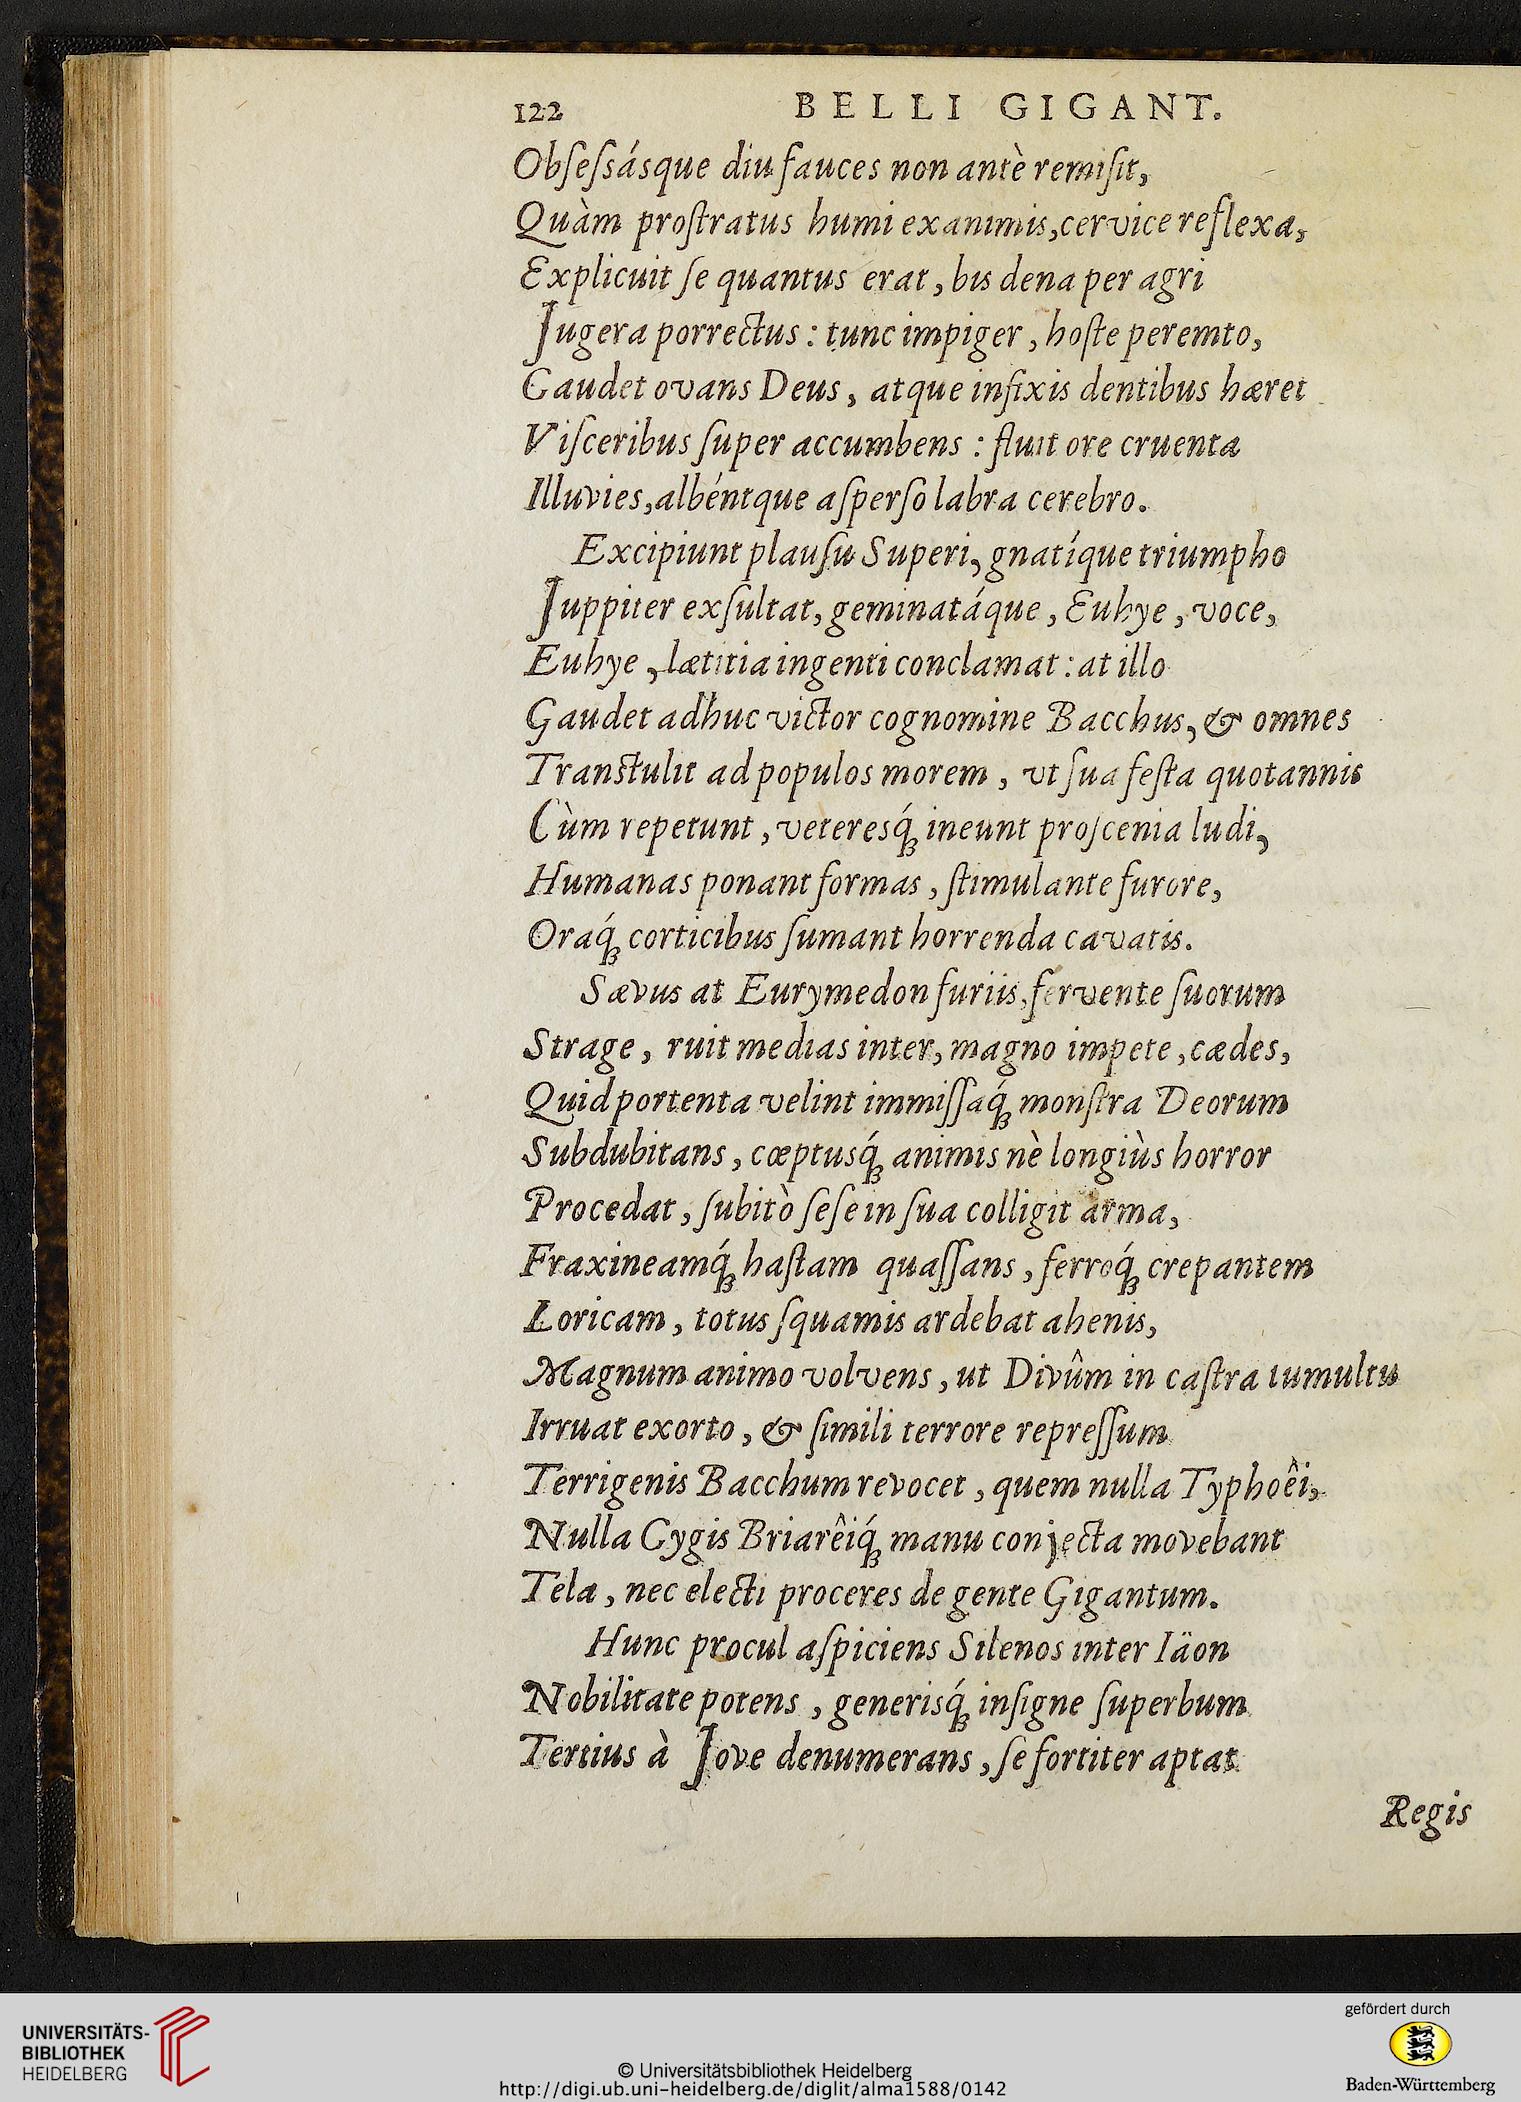 122 BELLI GIGANT.
Obſeſsásque diu fauces non antè remiſit,
Quàm proſtratus humi exanimis, cervice reflexa,
Explicuit ſe quantus erat, bis dena per agri
Jugera porrectus: tunc impiger, hoſte peremto,
Gaudet ovans Deus, atque infixis dentibus hæret
Viſceribus ſuper accumbens: fluit ore cruenta
Illuvies, albéntque aſperſo labra cerebro.
Excipiunt plauſu Superi, gnatíque triumpho
Juppiter exſultat, geminatáque, Euhye, voce,
Euhye, lætitia ingenti conclamat: at illo
Gaudet adhuc victor cognomine Bacchus, & omnes
Transtulit ad populos morem, vt ſua feſta quotannis
Cùm repetunt, veteresq́ꝫ ineunt proſcenia ludi,
Humanas ponant formas, ſtimulante furore,
Oraq́ꝫ corticibus ſumant horrenda cavatis.
Sævus at Eurymedon furiis, fervente ſuorum
Strage, ruit medias inter, magno impete, cædes,
Quid portenta velint immiſſaq́ꝫ monſtra Deorum
Subdubitans, cœptusq́ꝫ animis nè longiùs horror
Procedat, ſubitò ſeſe in ſua colligit arma,
Fraxineamq́ꝫ haſtam quaſſans, ferroq́ꝫ crepantem
Loricam, totus ſquamis ardebat ahenis,
Magnum animo volvens, ut Divûm in caſtra tumultu
Irruat exorto, & ſimili terrore repreſſum
Terrigenis Bacchum revocet, quem nulla Typhoêi,
Nulla Gygis Briarêiq́ꝫ manu conjecta movebant
Tela, nec electi proceres de gente Gigantum.
Hunc procul aſpiciens Silenos inter Iäon
Nobilitate potens, generisq́ꝫ inſigne ſuperbum
Tertius à Jove denumerans, ſe fortiter aptat
Regis
UNIVERSITÄTS-
BIBLIOTHEK
HEIDELBERG
© Universitätsbibliothek Heidelberg
http://digi.ub.uni-heidelberg.de/diglit/alma1588/0142
gefördert durch
Baden-Württemberg